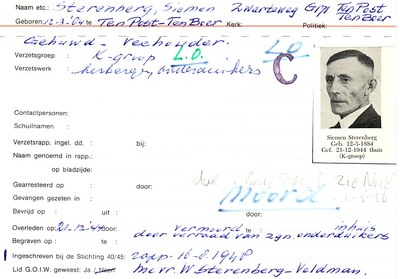 Naam etc.: Sterenberg, Siemen Zwarteweg G171 Ten Post
Geboren: 12-3-'84 te Ten Post-Ten Boer Kerk: Politiek: Ten Boer
Gehuwd - Veehouder.
Verzetsgroep : K-groep L.O. LO
Verzetswerk : herberger onderduikers
C
Contactpersonen:
Schuilnamen :
Siemen Sterenberg
Geb. 12-3-1884
Gef. 21-12-1944 thuis
(K-groep)
Verzetsrapp. ingel. dd. : bij:
Naam genoemd in rapp.:
op bladzijde:
Gearresteerd op : door:
Gevangen gezeten in : Moord
Bevrijd op : uit : door:
Overleden op: 21-12-'44 te : vermoord in: huis
Begraven op : te : door verraad van zgn. onderduikers
Ingeschreven bij de Stichting 40/45: rapp. 16-8-1948
Lid G.O.I.W. geweest: Ja / Neen Mevr. W Sterenberg-Veldman.